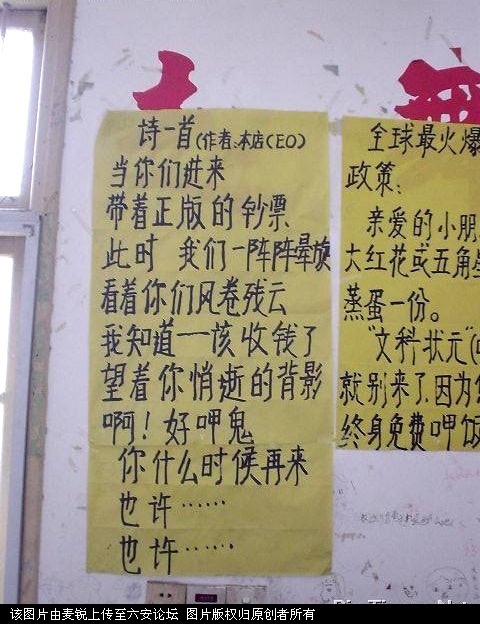 诗一首(作者:本店CEO)
当你们进来
带着正版的钞票
此时 我们一阵阵晕旋
看着你们风卷残云
我知道一该收钱了
望着你悄逝的背影
啊！好呷鬼
你什么时候再来
也许……
也许……
全球最火爆
政策：
亲爱的小朋
大红花或五角星
蒸蛋一份。
"文科状元"
就别来了.因为
终身免费呷饭
该图片由麦锐上传至六安论坛 图片版权归原创者所有